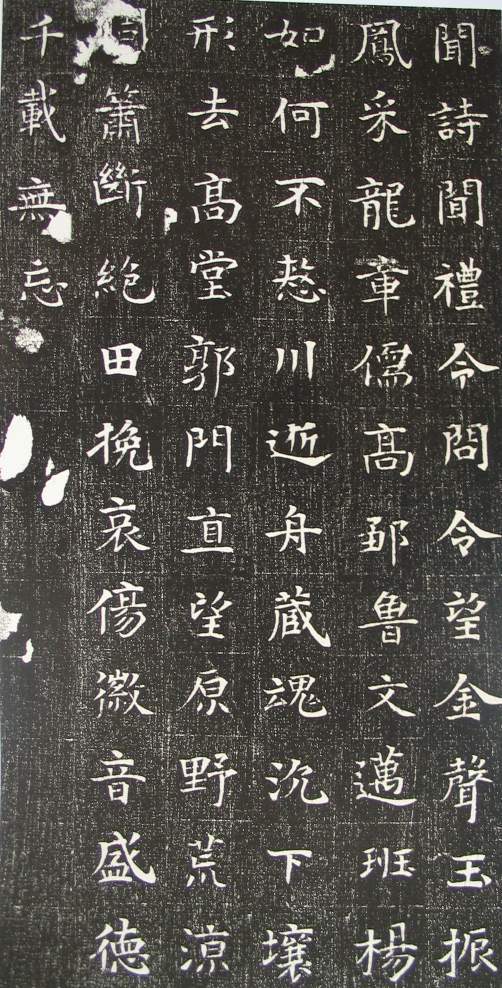 聞詩聞禮令問令望金聲玉振
鳳采龍章儒高鄒魯文邁班楊
如何不憗川逝舟蔵魂沉下壤
形去髙堂郭門直望原野荒涼
簫斷絕田挽哀傷徽音盛德
千載無忘